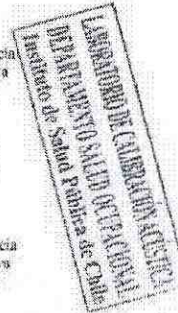 cia
a
LABORATORIO DE CALIBRACION ACUSTICA
DEPARTAMENTO SALUD OCUPACIONAL
Instituto de Salud Pública de Chile
cia